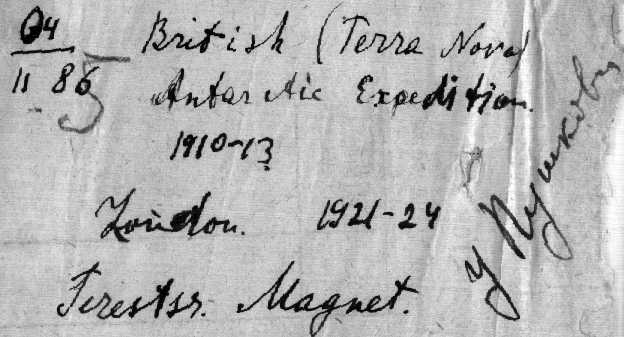 Q4
11 86
British (Terra Nova)
Antarctic Expedition.
1910-13
London. 1921-24
Terestsr. Magnet.
У Пушкову